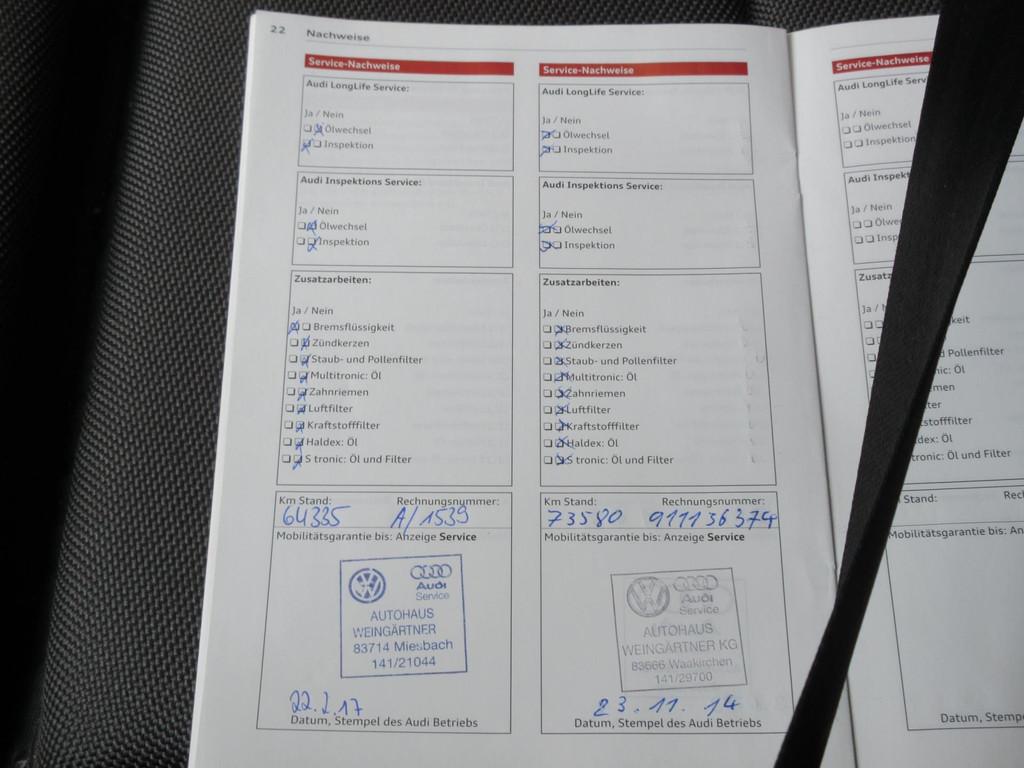 22 Nachweise
Service-Nachweise
Audi LongLife Service:
Ja / Nein
Ölwechsel
Inspektion
Audi Inspektions Service:
Ja / Nein
Ölwechsel
Inspektion
Zusatzarbeiten:
Ja / Nein
Bremsflüssigkeit
Zündkerzen
Staub- und Pollenfilter
Multitronic: Öl
Zahnriemen
Luftfilter
Kraftstofffilter
Haldex: Öl
S tronic: Öl und Filter
Km Stand: Rechnungsnummer:
64335 A/1539
Mobilitätsgarantie bis: Anzeige Service
Audi
Service
AUTOHAUS
WEINGÄRTNER
83714 Miesbach
141/21044
22.2.17
Datum, Stempel des Audi Betriebs
Service-Nachweise
Audi LongLife Service:
Ja / Nein
Ölwechsel
Inspektion
Audi Inspektions Service:
Ja / Nein
Ölwechsel
Inspektion
Zusatzarbeiten:
Ja / Nein
Bremsflüssigkeit
Zündkerzen
Staub- und Pollenfilter
Multitronic: Öl
Zahnriemen
Luftfilter
Kraftstofffilter
Haldex: Öl
S tronic: Öl und Filter
Km Stand: Rechnungsnummer:
73580 911136374
Mobilitätsgarantie bis: Anzeige Service
Audi
Service
AUTOHAUS
WEINGÄRTNER KG
83666 Waakirchen
141/29700
23.11.14
Datum, Stempel des Audi Betriebs
Service-Nachweise
Audi LongLife Serv
Ja / Nein
Ölwechsel
Inspektion
Audi Inspekt
Ja / Nein
Ölwe
Insp
Zusatz
Ja / N
keit
Pollenfilter
nic: Öl
men
ter
stofffilter
dex: Öl
ronic: Öl und Filter
Stand: Rech
Mobilitätsgarantie bis: An
Datum, Stemp